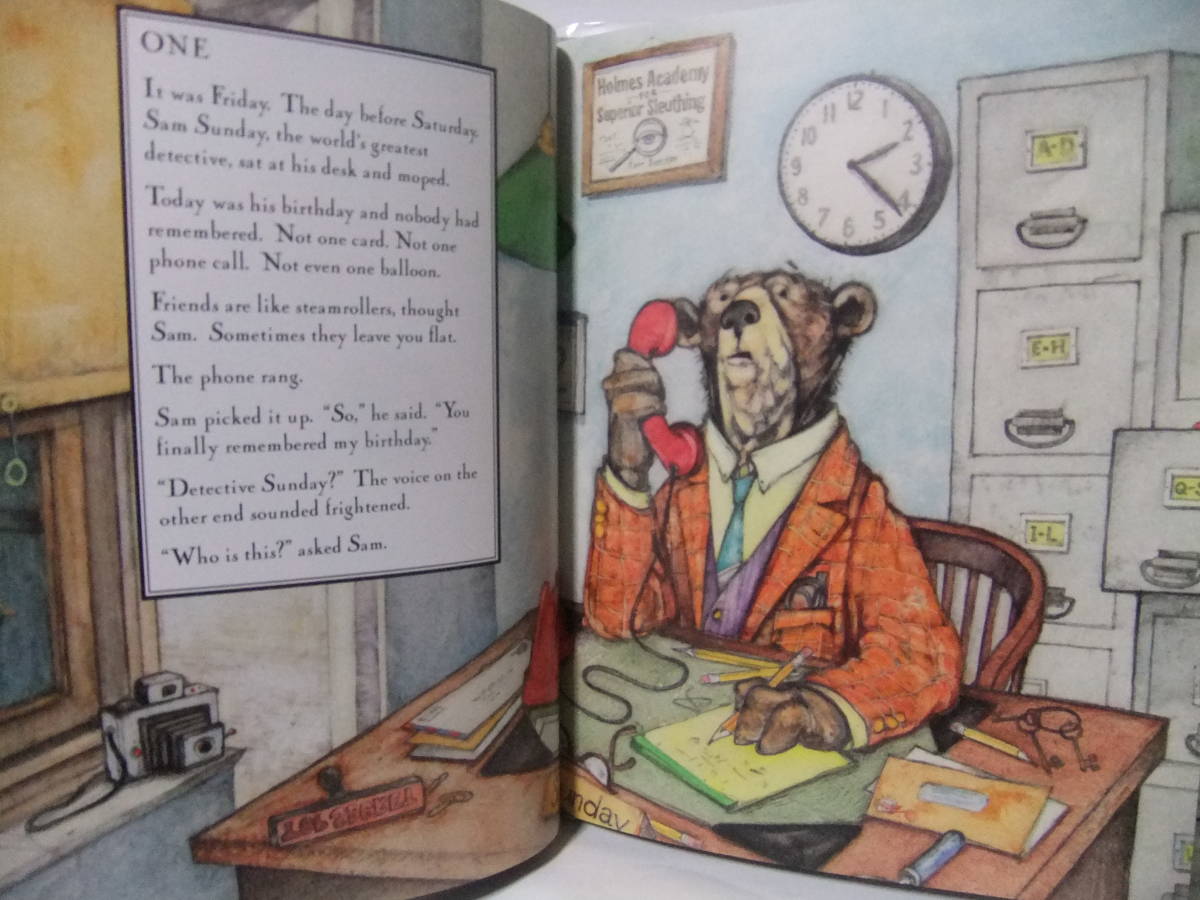 ONE
It was Friday. The day before Saturday.
Sam Sunday, the world's greatest
detective, sat at his desk and moped.
Today was his birthday and nobody had
remembered. Not one card. Not one
phone call. Not even one balloon.
Friends are like steamrollers, thought
Sam. Sometimes they leave you flat.
The phone rang.
Sam picked it up. "So," he said. "You
finally remembered my birthday."
"Detective Sunday?" The voice on the
other end sounded frightened.
"Who is this?" asked Sam.
Holmes Academy
FOR
Superior Sleuthing
12
1
2
3
4
5
6
7
8
9
10
11
A-D
E-H
I-L
Q-S
nday